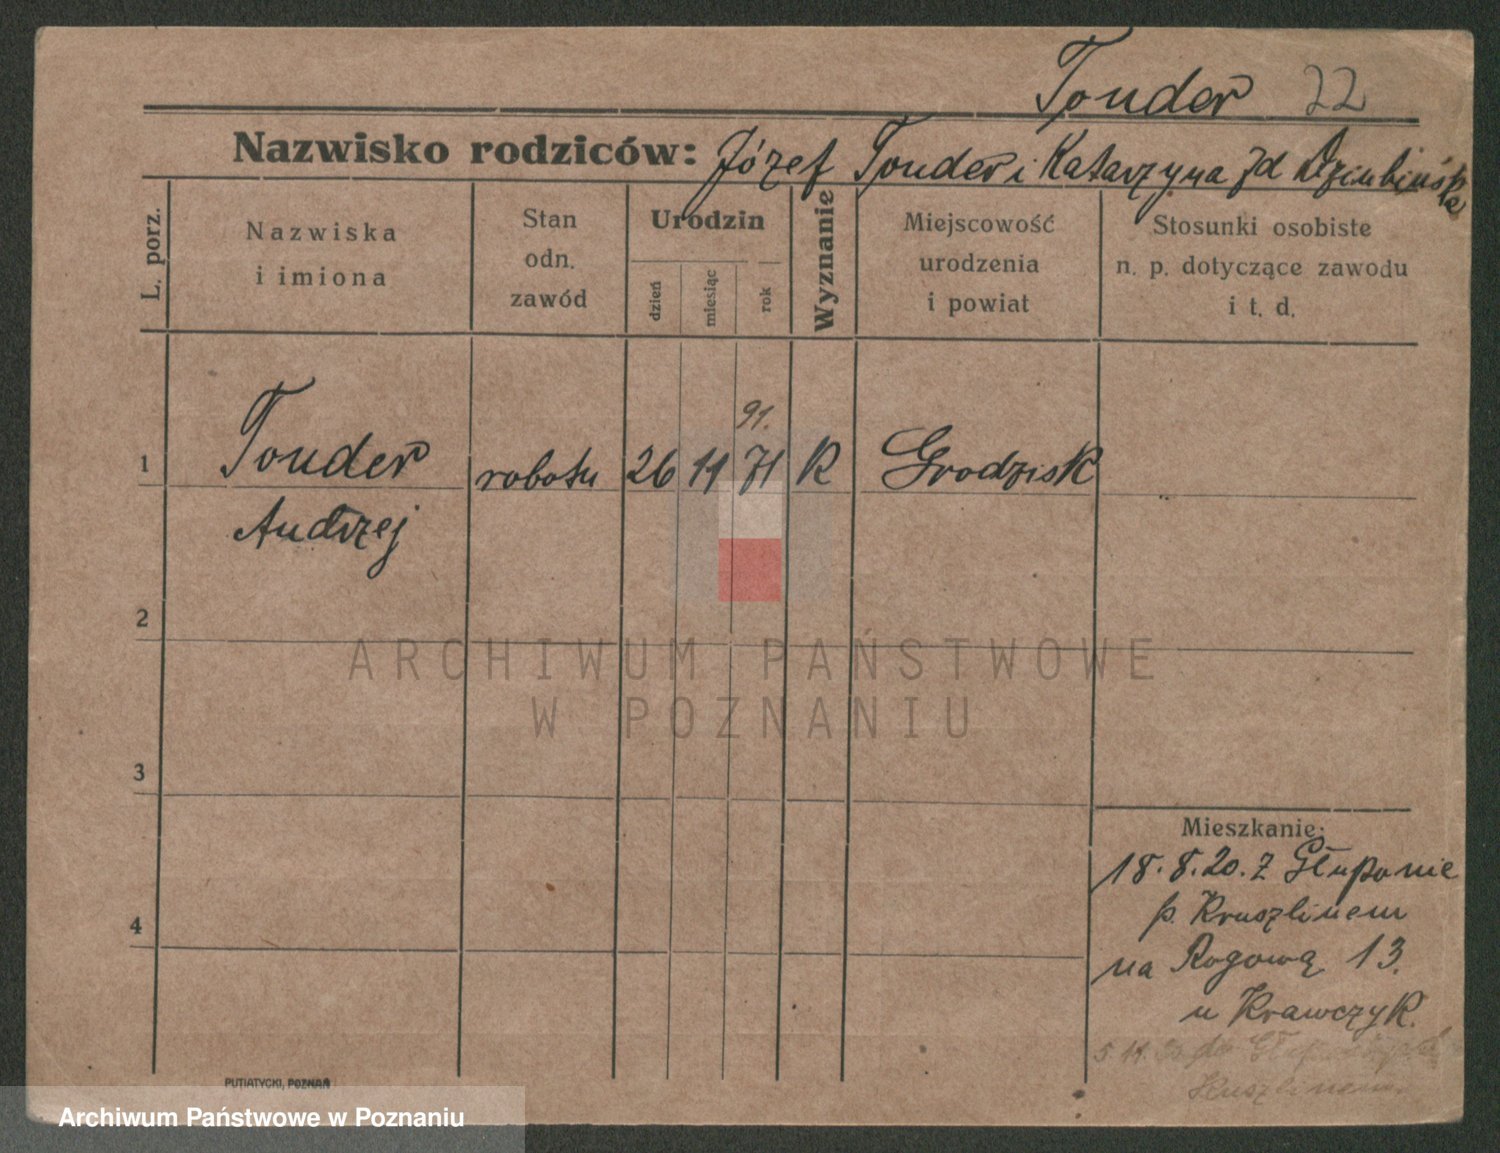 Tonder 22
Nazwisko rodziców: Józef Tonder i Katarzyna zd Dziubińska
L. porz.
Nazwiska
i imiona
Stan
odn.
zawód
Urodzin
dzień
miesiąc
rok
Wyznanie
Miejscowość
urodzenia
i powiat
Stosunki osobiste
n. p. dotyczące zawodu
i t. d.
91.
1 Tonder robotn 26 11 71 K Grodzisk
Andrzej
2
3
4
Mieszkanie:
18.8.20. z Głuponie
p. Kruszlinem
na Rogową 13.
u Krawczyk.
5 11 do
Kuszlinem
PUTIATYCKI, POZNAŃ
ARCHIWUM PAŃSTWOWE
W POZNANIU
Archiwum Państwowe w Poznaniu